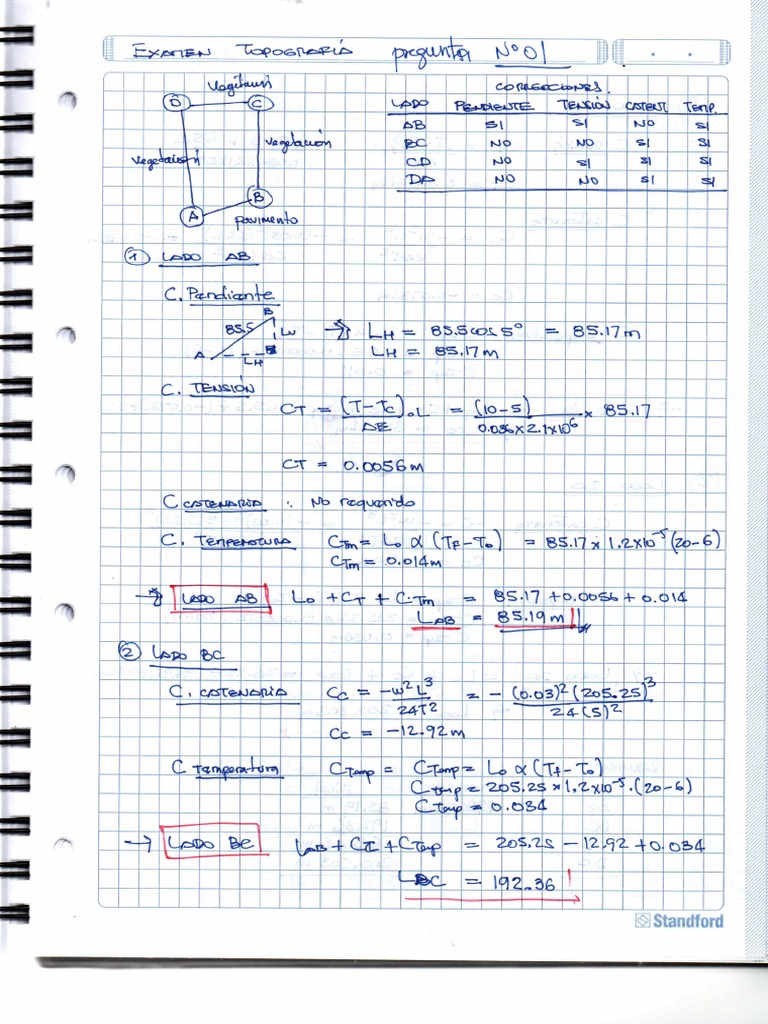 EXAMEN TOPOGRAFIA pregunta N°01
Vegetación
D C
vegetación vegetación
A B
pavimento
CORRECCIONES.
LADO PENDIENTE TENSIÓN CATENT. TEMP.
AB SI SI NO SI
BC NO NO SI SI
CD NO SI SI SI
DA NO NO SI SI
1 LADO AB
C. Pendiente
B
85.5
A LH
→ LH = 85.5 cos 5° = 85.17 m
LH = 85.17 m
C. TENSIÓN
CT = (T-Tc).L / AE = (10-5) / 0.036 x 2.1x10⁶ x 85.17
CT = 0.0056 m
C CATENARIA : No requerido
C. TEMPERATURA CTm = Lo α (Tf-To) = 85.17 x 1.2x10⁻⁵ (20-6)
CTm = 0.014 m
→ LADO AB Lo + CT + C.Tm = 85.17 + 0.0056 + 0.014
LAB = 85.19 m
2 LADO BC
C. CATENARIA Cc = -w² L³ / 24T² = - (0.03)² (205.25)³ / 24 (5)²
Cc = -12.92 m
C Temperatura CTemp = CTemp = Lo α (Tf-To)
Ctemp = 205.25 x 1.2x10⁻⁵ . (20-6)
CTemp = 0.034
→ LADO BC LAB + CC + CTemp = 205.25 - 12.92 + 0.034
LBC = 192.36
Standford